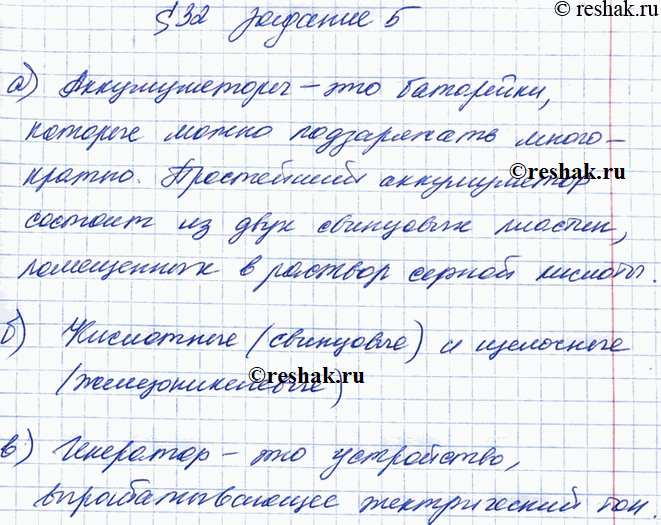 © reshak.ru
§ 32 задание 5
а) Аккумуляторы – это батарейки,
которые можно подзаряжать много-
кратно. Простейший аккумулятор
©reshak.ru
состоит из двух свинцовых пластин,
помещенных в раствор серной кислоты.
б) Кислотные (свинцовые) и щелочные
(железоникелевые)
©reshak.ru
в) Генератор – это устройство,
вырабатывающее электрический ток.